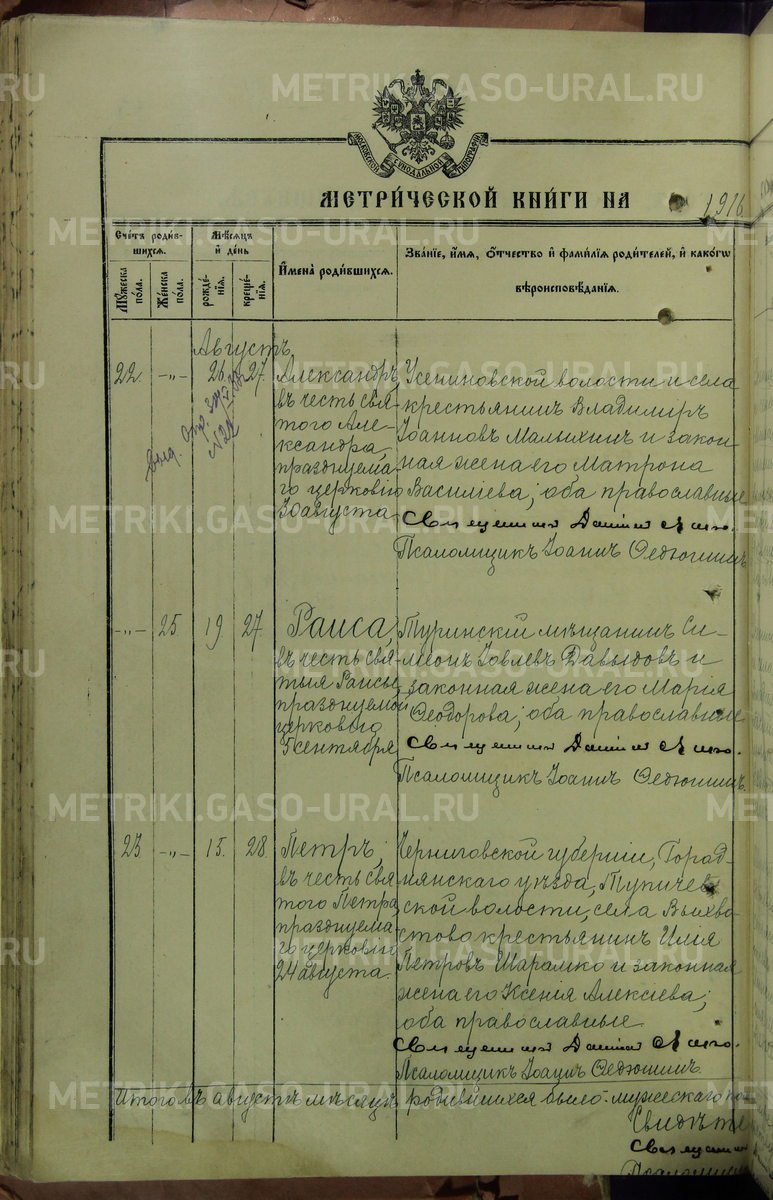 METRIKI.GASO-URAL.RU
МОСКОВСКОЙ СѴНОДАЛЬНОЙ ТИПОГРАФІИ
МЕТРИ́ЧЕСКОЙ КНИ́ГИ НА 1916
Сче́тъ роди́в-
шихсѧ.
Мꙋ́жеска
по́ла.
Же́нска
по́ла.
Мѣ́сѧцъ
и҆ де́нь
рожде́-
нїѧ.
креще́-
нїѧ.
И҆мена̀ роди́вшихсѧ.
Зва́нїе, и҆́мѧ, ѻ҆́тчество и҆ фами́лїѧ роди́телей, и҆ како́гѡ
вѣроисповѣ́данїѧ.
Августъ
22. -„- 26. 27.
Александръ,
въ честь свя-
того Але-
ксандра,
празднуема-
го церковію
30 августа
Усениновской волости и села
крестьянинъ Владиміръ
Іоанновъ Малыхинъ и закон-
ная жена его Матрона
Василіева; оба православные
Священникъ
Псаломщикъ Іоаннъ Федюшинъ
-„- 25. 19. 27.
Раиса,
въ честь свя-
тыя Раисы,
празднуемой
церковію
5 сентября
Туринскій мѣщанинъ Си-
меонъ Іовлевъ Давыдовъ и
законная жена его Марія
Ѳеодорова; оба православные
Священникъ
Псаломщикъ Іоаннъ Федюшинъ.
23 -„- 15. 28
Петръ,
въ честь свя-
того Петра,
празднуема-
го церковію
24 августа.
Черниговской губерніи, Город-
нянскаго уѣзда, Тупичев-
ской волости, села Выхво-
стово крестьянинъ Илія
Петровъ Шарамко и законная
жена его Ксенія Алексіева;
оба православные
Священникъ
Псаломщикъ Іоаннъ Федюшинъ
Итого въ августѣ мѣсяцѣ родившихся было: мужескаго по-
Свидѣте
Священни
Псаломщик